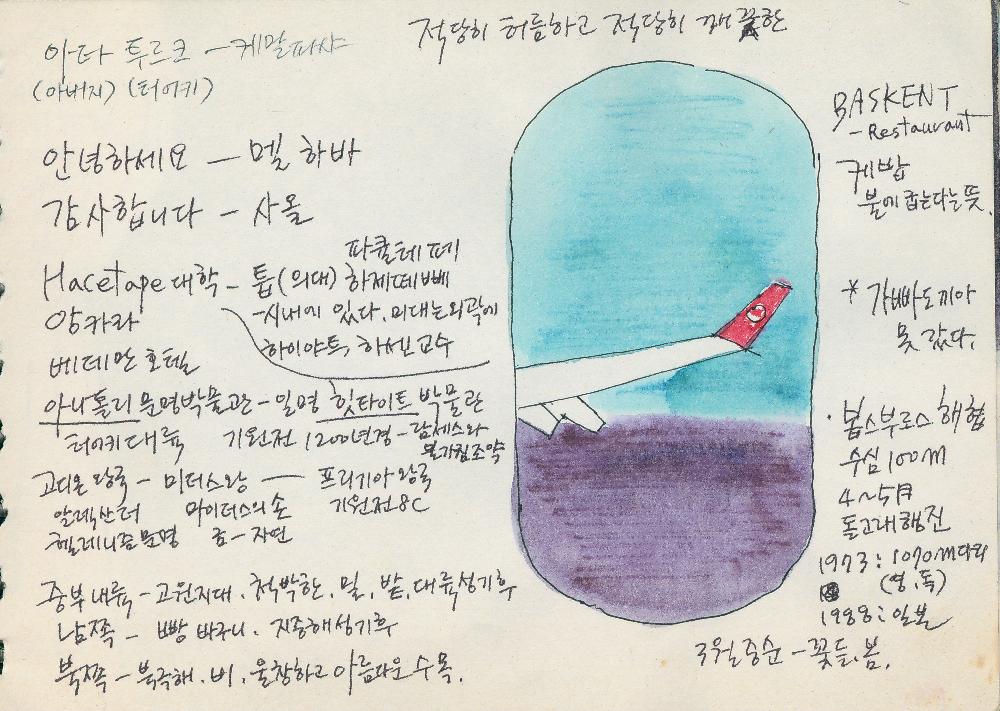 적당히 허름하고 적당히 깨끗한
아타 투르크 - 케말파샤
(아버지) (터어키)
안녕하세요 - 멜 하바
감사합니다 - 사올
Hacetape 대학 - 톱(의대) 하제떼뻬
파큘테페
앙카라
-시내에 있다, 의대는 외곽에
하이야트, 하쎈교수
베데만 호텔
아나톨리 문명박물관 - 일명 힛타이트 박물관
터어키대륙 기원전 1200년경 - 람세스와
불가침조약
고디온 왕국 - 미더스왕 - 프리기아 왕국
알렉산더 마이더스의 손 기원전 8C
헬레니즘문명 금 - 자연
중부내륙 - 고원지대, 척박한, 밀, 밭, 대륙성기후
남쪽 - 빵 바구니. 지중해성기후
북쪽 - 북극해. 비. 울창하고 아름다운 수목.
BASKENT
- Restaurant
케밥
불에 굽는다는 뜻.
* 가빠도끼아
못 갔다.
· 봅스부로스 해협
수심 100M
4~5月
돌고래 행진
1973: 1070M 다리
(영, 독)
1988: 일본
3월 중순 - 꽃들. 봄.